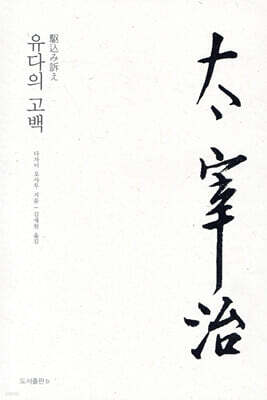 太宰治
駆込み訴え
유다의 고백
다자이 오사무 지음 | 김재원 옮김
도서출판 b